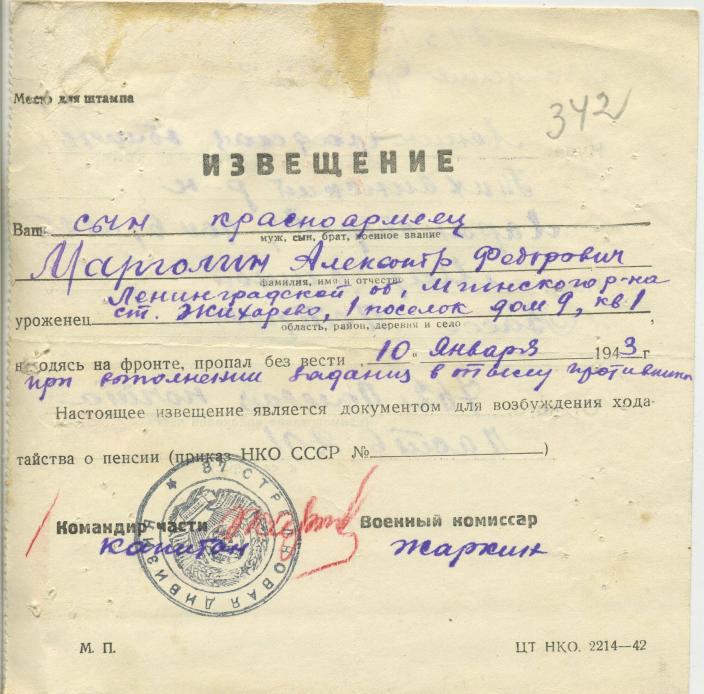 Место для штампа
342
ИЗВЕЩЕНИЕ
Ваш сын красноармеец
муж, сын, брат, военное звание
Марголин Александр Федорович
фамилия, имя и отчество
Ленинградской об, Мгинского р-на
уроженец ст. Жихарево, 1 поселок дом 9, кв 1
область, район, деревня и село
находясь на фронте, пропал без вести „10 " Января 1943 г
при выполнении задания в тылу противника
Настоящее извещение является документом для возбуждения хода-
тайства о пенсии (приказ НКО СССР № )
87 СТРЕЛКОВАЯ ДИВИЗИЯ
Командир части Военный комиссар
капитан Жаркин
М. П. ЦТ НКО. 2214—42